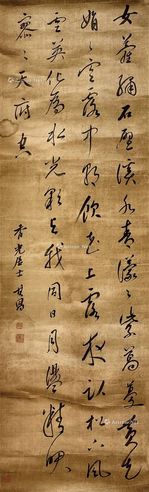 女蘿繡石壁溪水青濛々紫葛蔓黃花
娟々寒露中朝飲花上露夜臥松下風
雲英化為水光彩與我同日月盪精魄
寥々天府空
香光居士其昌